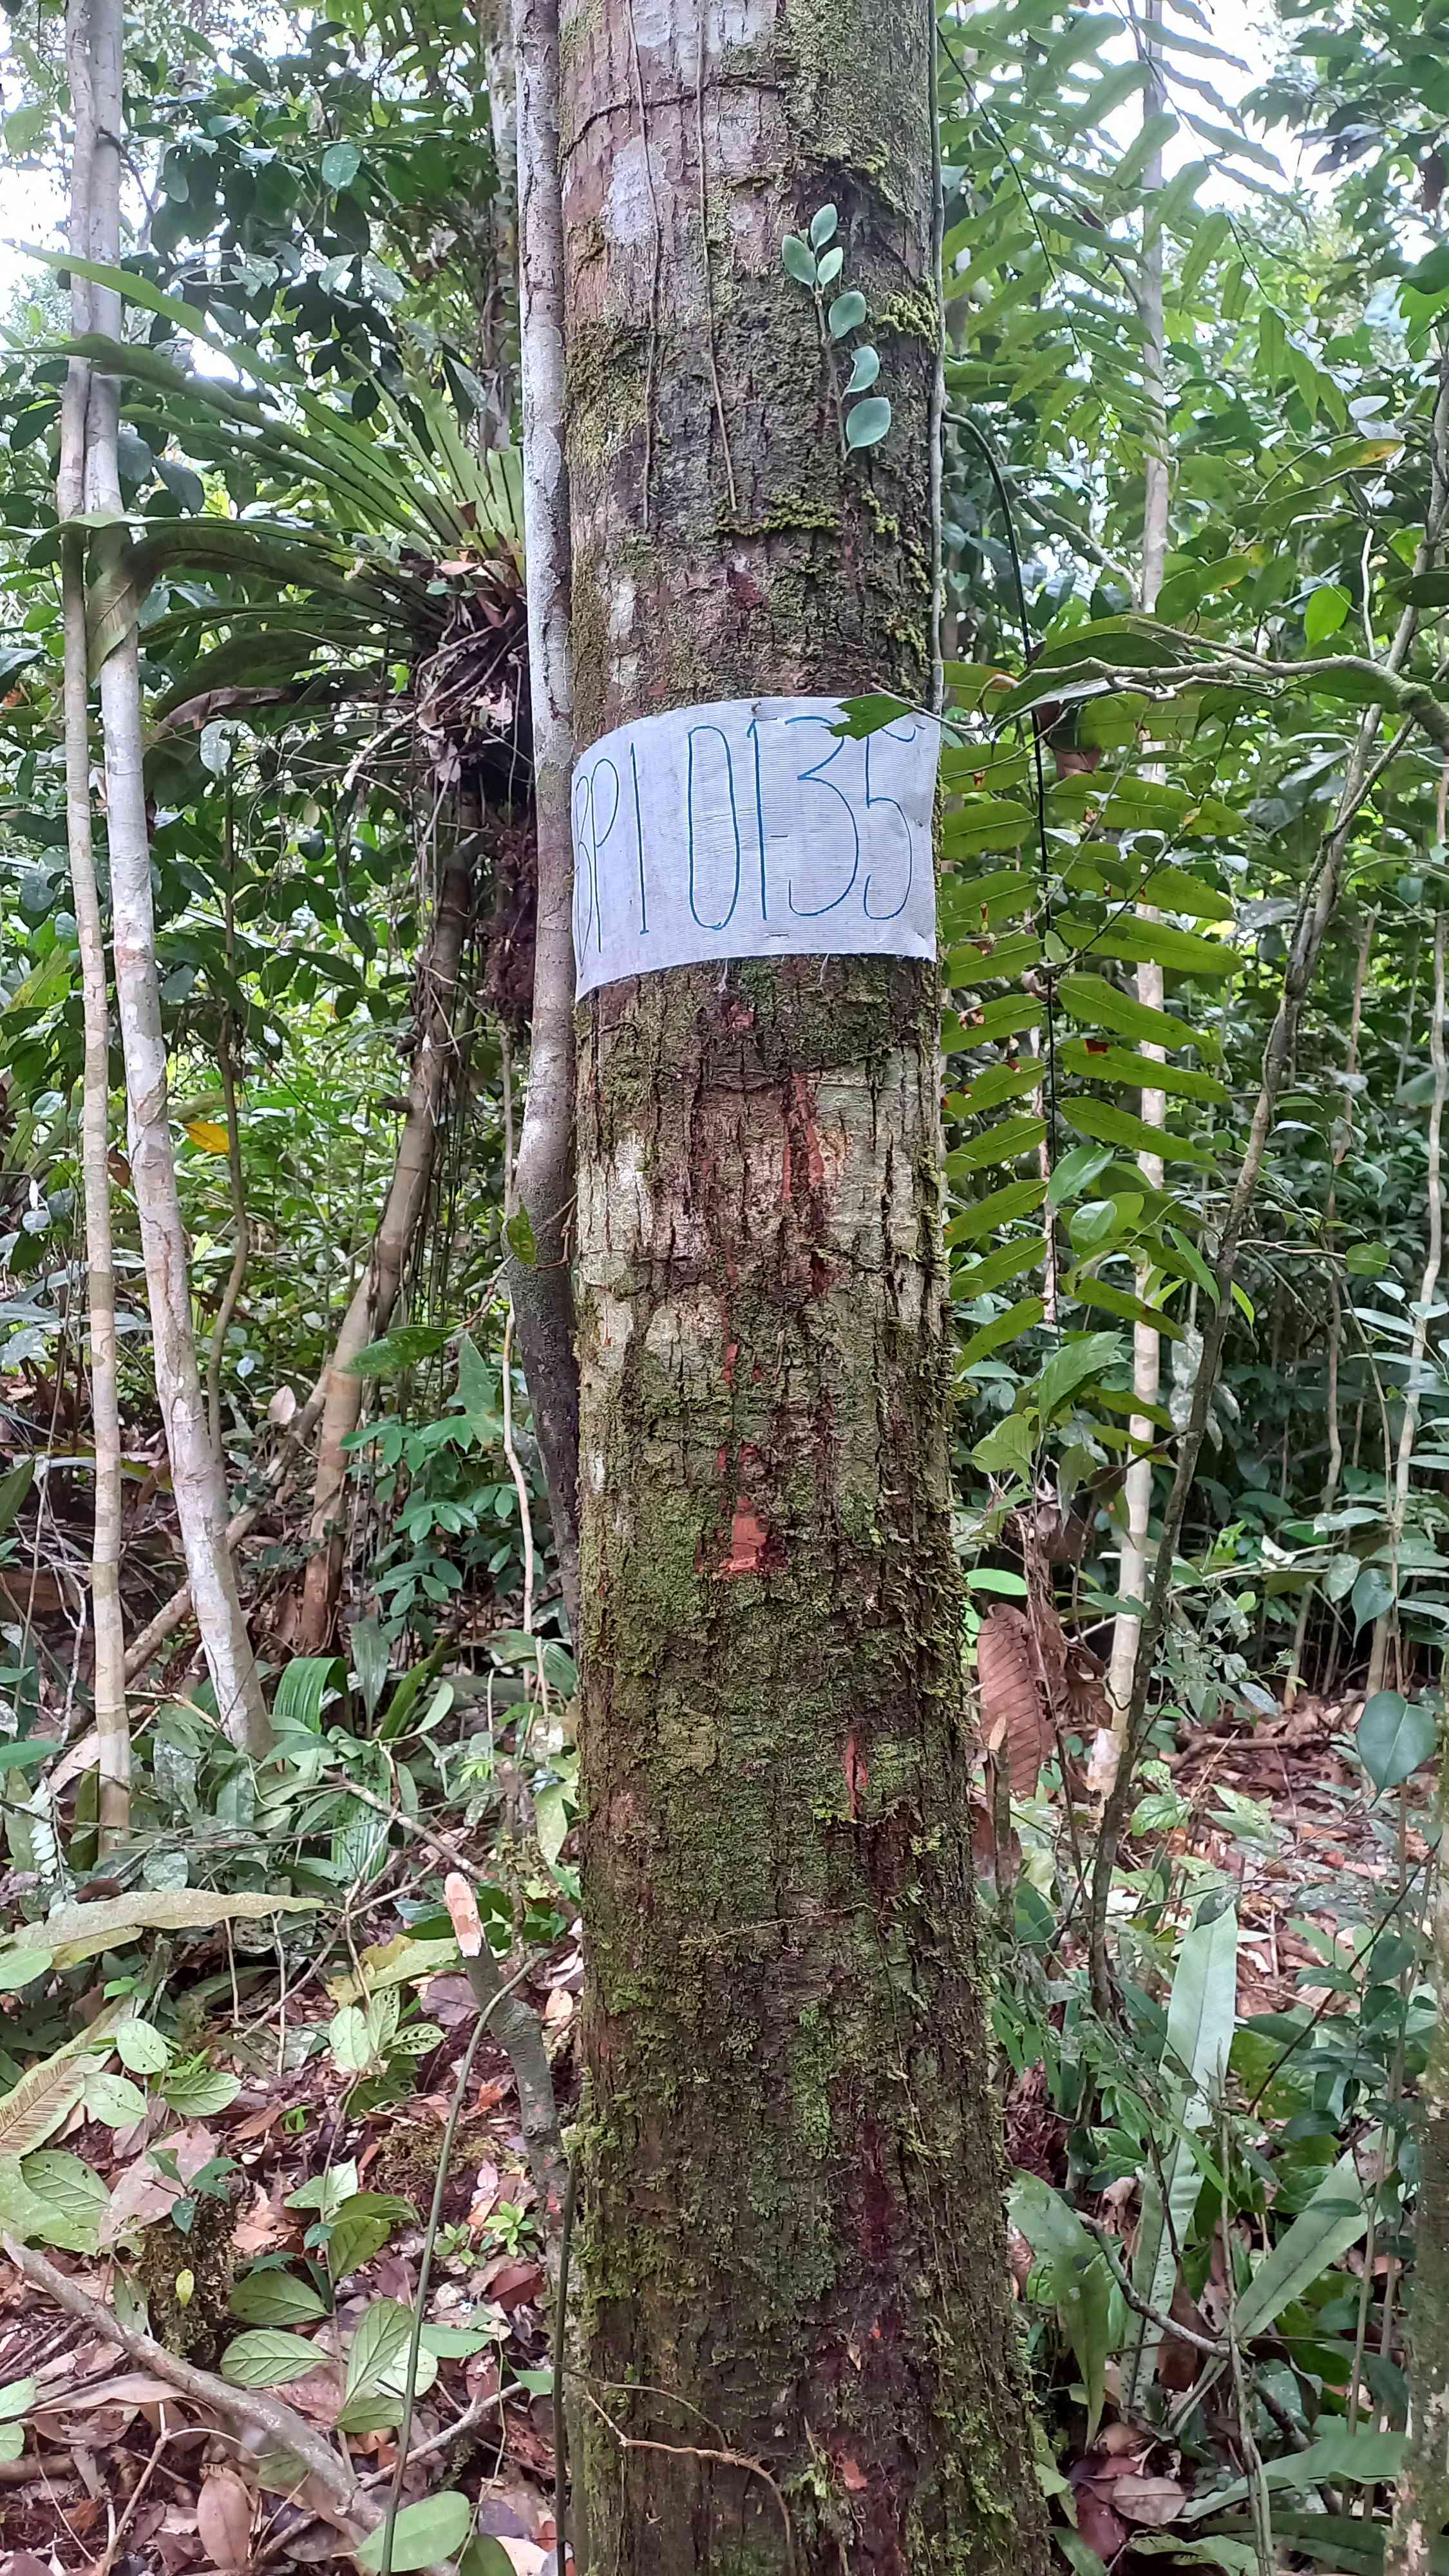 BPI 0135